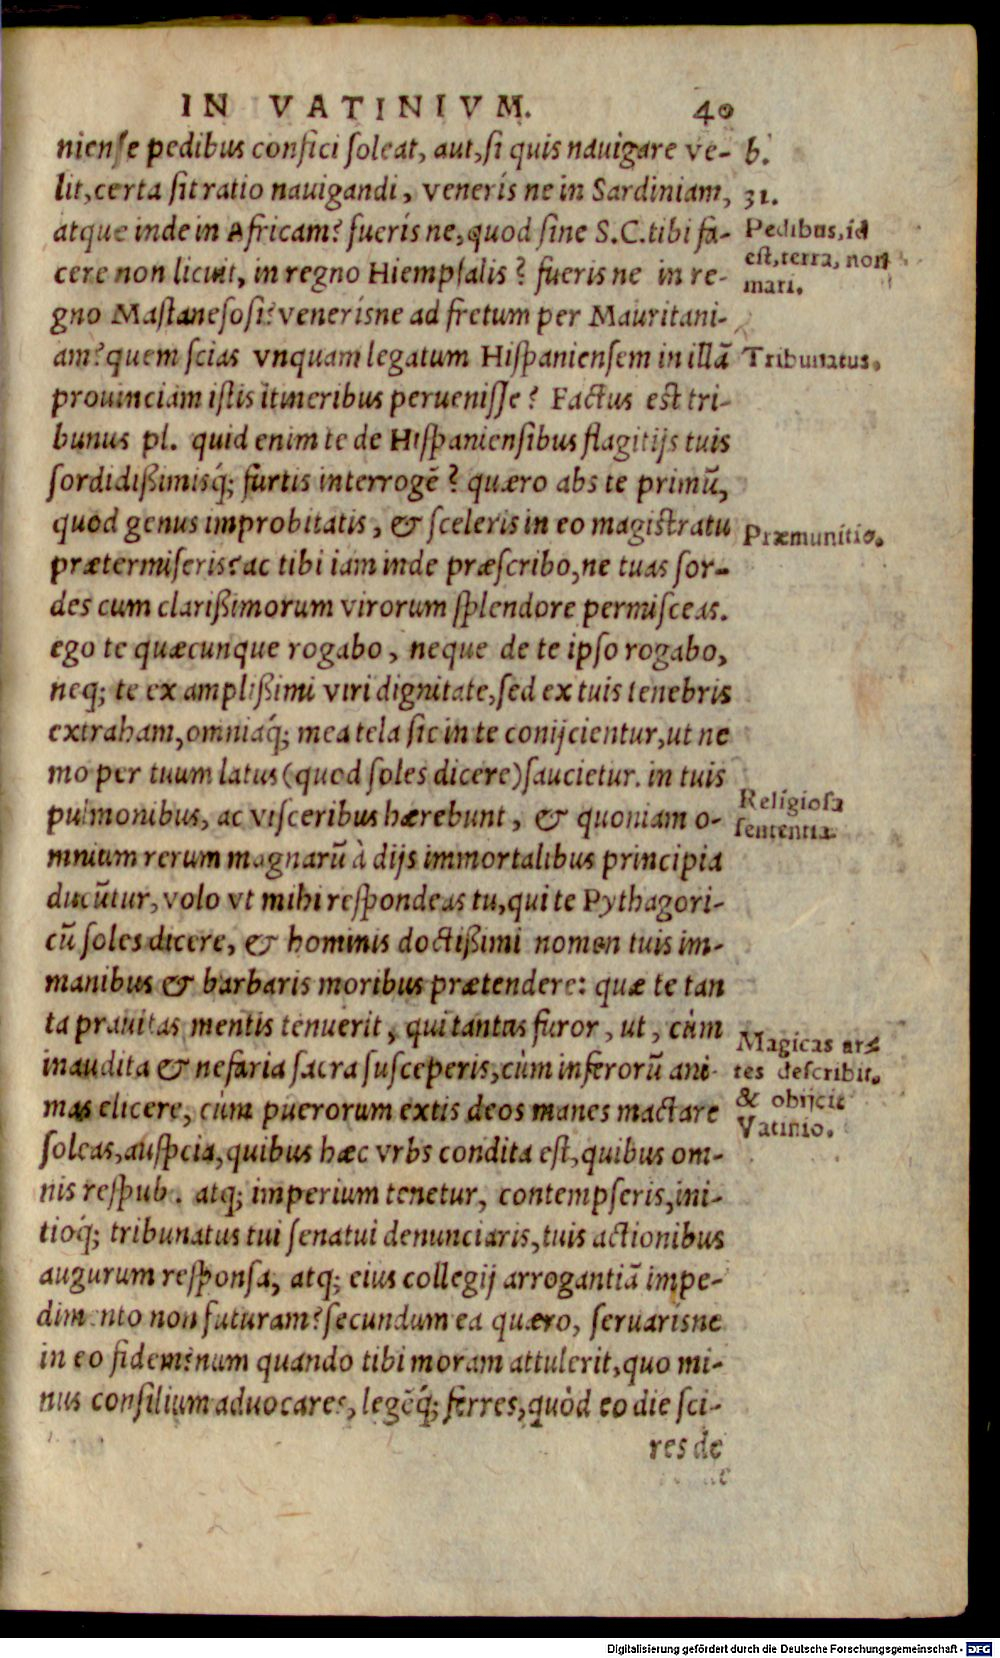 IN VATINIVM. 40
niense pedibus confici soleat, aut, si quis nauigare ve- b.
lit, certa sit ratio nauigandi, venerís ne in Sardiniam, 31.
atque inde in Africam? fuerís ne, quod sine S.C. tibi fa-
cere non licuit, in regno Hiempsalis? fueris ne in re-
gno Mastanesosi? venerísne ad fretum per Mauritani-
am? quem scias vnquam legatum Hispaniensem in illā
prouinciam istis itineribus peruenisse? Factus est tri-
bunus pl. quid enim te de Hispaniensibus flagitijs tuis
sordidißimisq́; furtis interrogē? quæro abs te primū,
quod genus improbitatis, & sceleris in eo magistratu
prætermiseris? ac tibi iam inde præscribo, ne tuas sor-
des cum clarißimorum virorum splendore permisceas.
ego te quæcunque rogabo, neque de te ipso rogabo,
neq; te ex amplißimi viri dignitate, sed ex tuis tenebris
extraham, omniaq́; mea tela sic in te conijcientur, ut ne
mo per tuum latus (quod soles dicere) saucietur. in tuis
pulmonibus, ac visceribus hærebunt, & quoniam o-
mnium rerum magnarū à dijs immortalibus principia
ducūtur, volo vt mihi respondeas tu, qui te Pythagori-
cū soles dicere, & hominis doctißimi nomen tuis im-
manibus & barbaris moribus prætendere: quæ te tan
ta prauitas mentis tenuerit, qui tantus furor, ut, cùm
inaudita & nefaria sacra susceperis, cùm inferorū ani-
mas elicere, cùm puerorum extis deos manes mactare
soleas, auspcia, quibus hæc vrbs condita est, quibus om-
nis respub. atq; imperium tenetur, contempseris, ini-
tioq́; tribunatus tui senatui denunciaris, tuis actionibus
augurum responsa, atq; eius collegij arrogantiā impe-
dimento non futuram? secundum ea quæro, seruarísne
in eo fidem? num quando tibi moram attulerit, quo mi-
nus consilium aduocares, legēq́; ferres, quòd eo die sci-
res de
Pedibus, id
est, terra, non
mari.
Tribunatus.
Præmunitio.
Religiosa
sententia.
Magicas ar-
tes describit,
& obijcit
Vatinio.
Digitalisierung gefördert durch die Deutsche Forschungsgemeinschaft - DFG